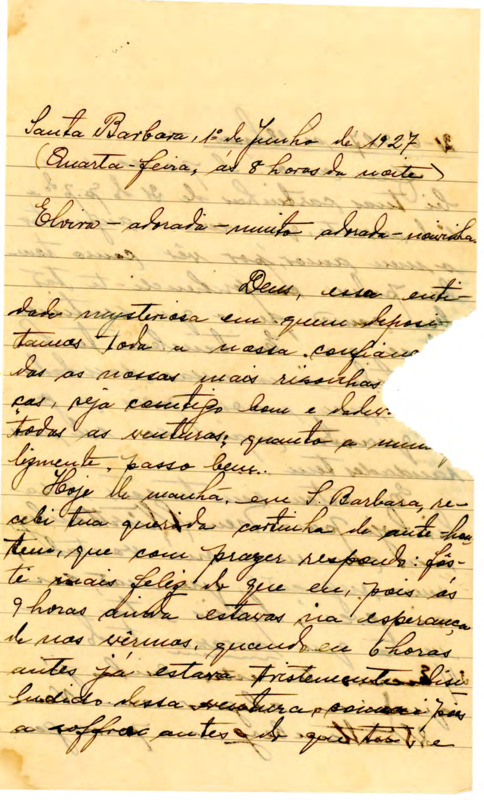 Santa Barbara, 1º de Junho de 1927
(Quarta-feira, ás 8 horas da noite)
Elvira - adorada - muito adorada - noivinha
Deus, essa enti-
dade mysteriosa em quem deposi-
tamos toda a nossa confian
das as nossas mais risonhas
ças, seja comtigo bom e
todas as venturas; quanto a mim,
lizmente, passo bem.
Hoje de manhã, em S. Barbara, re-
cebi tua querida cartinha de ante-hon-
tem, que com prazer respondo: fôs-
te mais feliz do que eu, pois ás
9 horas ainda estavas na esperança
de nos vêrmos, quando eu 6 horas
antes já estava tristemente disil-
ludido dessa
a soffrer antes do que tu e